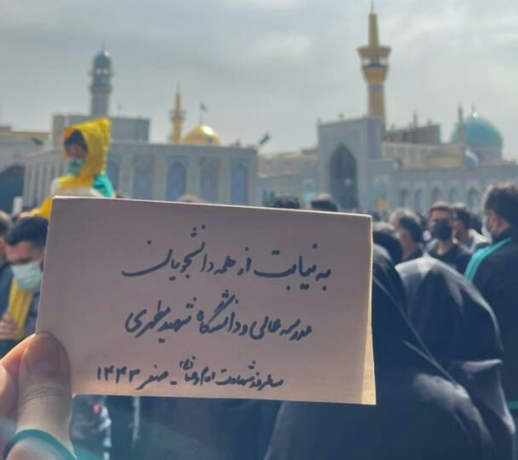 به نیابت از همه دانشجویان
مدرسه عالی و دانشگاه شهید مطهری
سالروز شهادت امام رضا صفر ۱۴۴۳